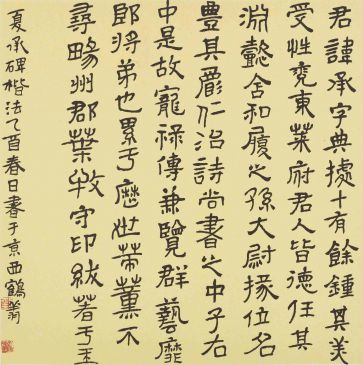 君諱承字典據十有餘鍾其美
受性兗東萊府君人皆德任其
淵懿含和履之孫大尉掾位名
豐其爵仁治詩尚書之中子右
中是故寵祿傳兼覽群藝靡
郎將弟也累于歷世策薰不
尋暢州郡葉牧守印紱著于王
夏承碑楷法乙酉春日書于京西鶴翁